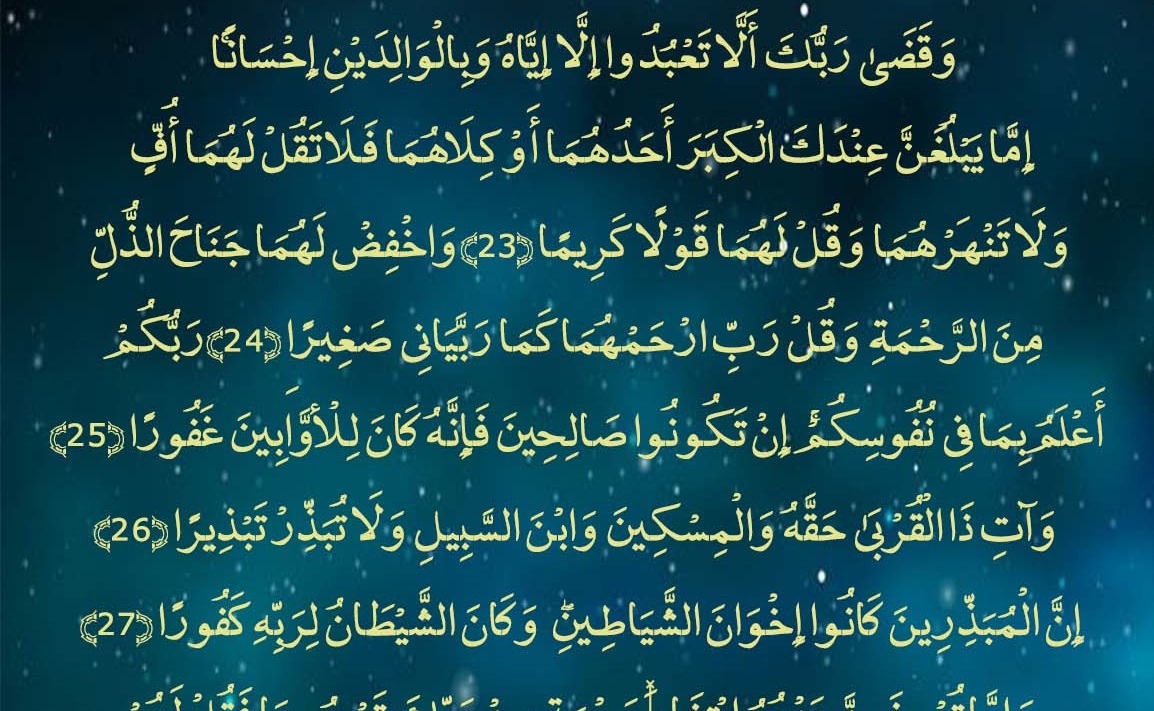 وَقَضَىٰ رَبُّكَ أَلَّا تَعْبُدُوا إِلَّا إِيَّاهُ وَبِالْوَالِدَيْنِ إِحْسَانًا
إِمَّا يَبْلُغَنَّ عِنْدَكَ الْكِبَرَ أَحَدُهُمَا أَوْ كِلَاهُمَا فَلَا تَقُلْ لَهُمَا أُفٍّ
وَلَا تَنْهَرْهُمَا وَقُلْ لَهُمَا قَوْلًا كَرِيمًا ﴿23﴾ وَاخْفِضْ لَهُمَا جَنَاحَ الذُّلِّ
مِنَ الرَّحْمَةِ وَقُلْ رَبِّ ارْحَمْهُمَا كَمَا رَبَّيَانِي صَغِيرًا ﴿24﴾ رَبُّكُمْ
أَعْلَمُ بِمَا فِي نُفُوسِكُمْ ۚ إِنْ تَكُونُوا صَالِحِينَ فَإِنَّهُ كَانَ لِلْأَوَّابِينَ غَفُورًا ﴿25﴾
وَآتِ ذَا الْقُرْبَىٰ حَقَّهُ وَالْمِسْكِينَ وَابْنَ السَّبِيلِ وَلَا تُبَذِّرْ تَبْذِيرًا ﴿26﴾
إِنَّ الْمُبَذِّرِينَ كَانُوا إِخْوَانَ الشَّيَاطِينِ ۖ وَكَانَ الشَّيْطَانُ لِرَبِّهِ كَفُورًا ﴿27﴾